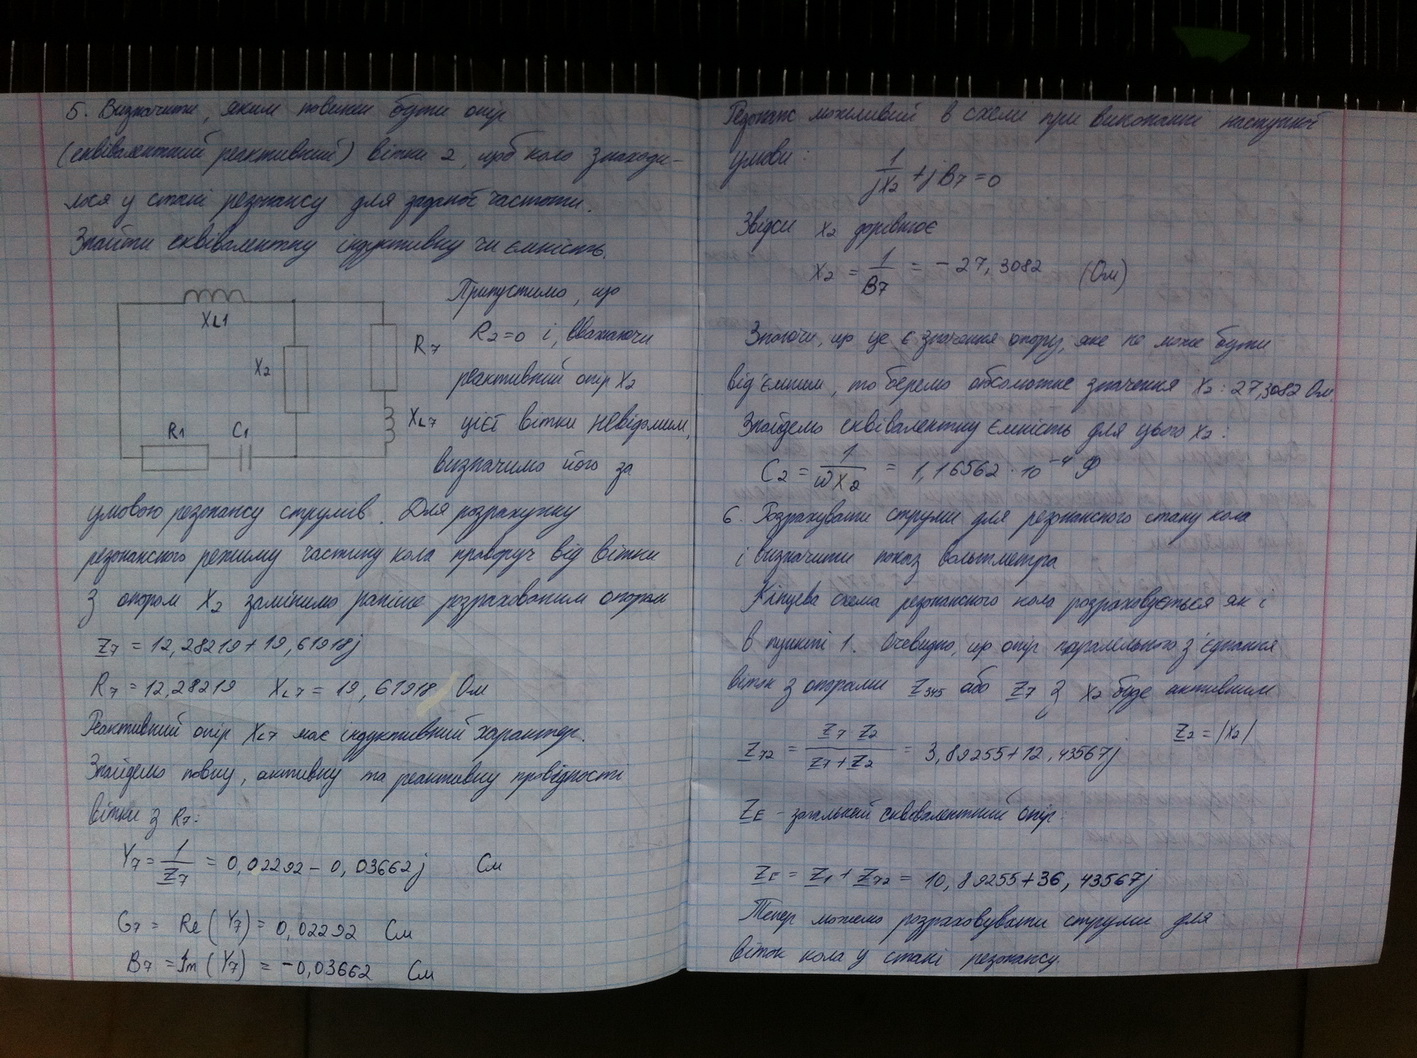 5. Визначити, яким повинен бути опір
(еквівалентний реактивний) вітки 2, щоб коло знаходи-
лося у стані резонансу для заданої частоти.
Знайти еквівалентну індуктивну чи ємність.
XL1
X2
R7
XL7
R1
C1
Припустимо, що
R2=0 і, вважаючи
реактивний опір X2
цієї вітки невідомим,
визначимо його за
умовою резонансу струмів. Для розрахунку
резонансного режиму частину кола праворуч від вітки
з опором X2 замінимо раніше розрахованим опором
Z7 = 12,28219+19,61918j
R7 = 12,28219 XL7 = 19,61918 Ом
Реактивний опір XL7 має індуктивний характер.
Знайдемо повну, активну та реактивну провідності
вітки з R7:
Y7 = 1/Z7 = 0,02292 - 0,03662j См
G7 = Re(Y7) = 0,02292 См
B7 = Im(Y7) = -0,03662 См
Резонанс можливий в схемі при виконанні наступної
умови:
1/jX2 + jB7 = 0
Звідси X2 дорівнює
X2 = 1/B7 = -27,3082 (Ом)
Знаючи, що це є значення опору, яке не може бути
від'ємним, то беремо абсолютне значення X2: 27,3082 Ом
Знайдемо еквівалентну ємність для цього X2:
C2 = 1/ωX2 = 1,16562·10⁻⁴ Ф
6. Розрахувати струми для резонансного стану кола
і визначити показ вольтметра
Кінцева схема резонансного кола розраховується як і
в пункті 1. Очевидно, що опір паралельного з'єднання
віток з опорами Z345 або Z7 з X2 буде активним
Z72 = Z7 Z2/Z7+Z2 = 3,89255+12,43567j Z2 = |X2|
ZE - загальний еквівалентний опір:
ZE = Z1 + Z72 = 10,89255+36,43567j
Тепер можемо розраховувати струми для
віток кола у стані резонансу